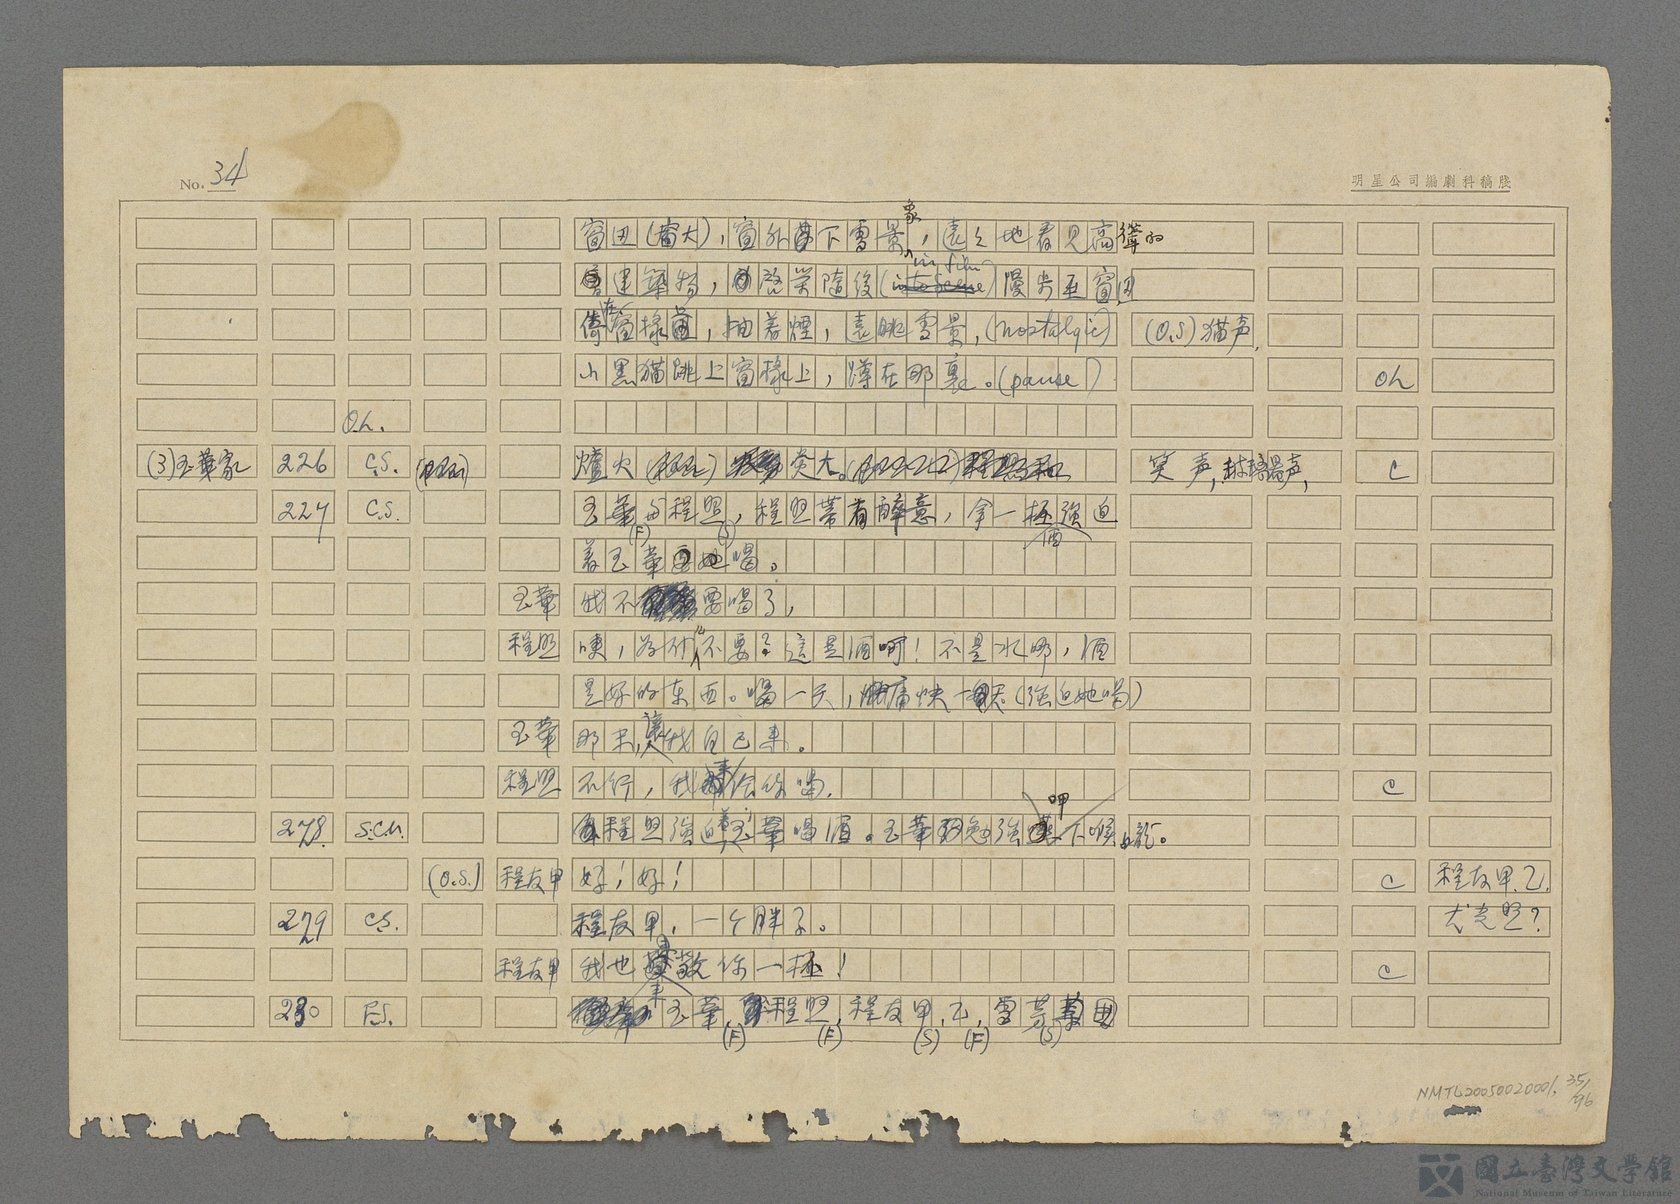 No. 34
明星公司編劇科稿牋
窗ㄖ(窗大),窗外下雪景象,遠々地看見高聳的
建築物,啓榮隨後(in film)慢步至窗ㄖ
倚在窗椽,抽着煙,遠眺雪景,(nostalgic) (O.S)猫声,
小黑猫跳上窗椽上,蹲在那裏。(pause) Oh
O.L.
(3)玉華家 226 C.S. 爐火 炎大。 笑声, C
227 C.S. 玉華(F)与程照(S),程照帶有醉意,拿一杯酒強迫
着玉華 她喝。
玉華 我不要喝了,
程照 咦,為什々不要?這是酒啊!不是水哪,酒
是好的东西。喝一天,痛快一天(強迫她喝)
玉華 那末,讓我自己来。
程照 不行,我来 給你喝. C
228. S.C.U. 程照強迫着玉華喝酒。玉華勉強呷下喉嚨。
(O.S.) 程友甲 好!好! C 程友甲.乙.
229 C.S. 程友甲,一个胖子。 尤光照?
程友甲 我也来敬你一杯! C
230 F.S. 玉華(F),程照(F),程友甲(S),乙(F),雪芳(S)
NMTL20050020001. 35/96
國立臺灣文學館
National Museum of Taiwan Literature